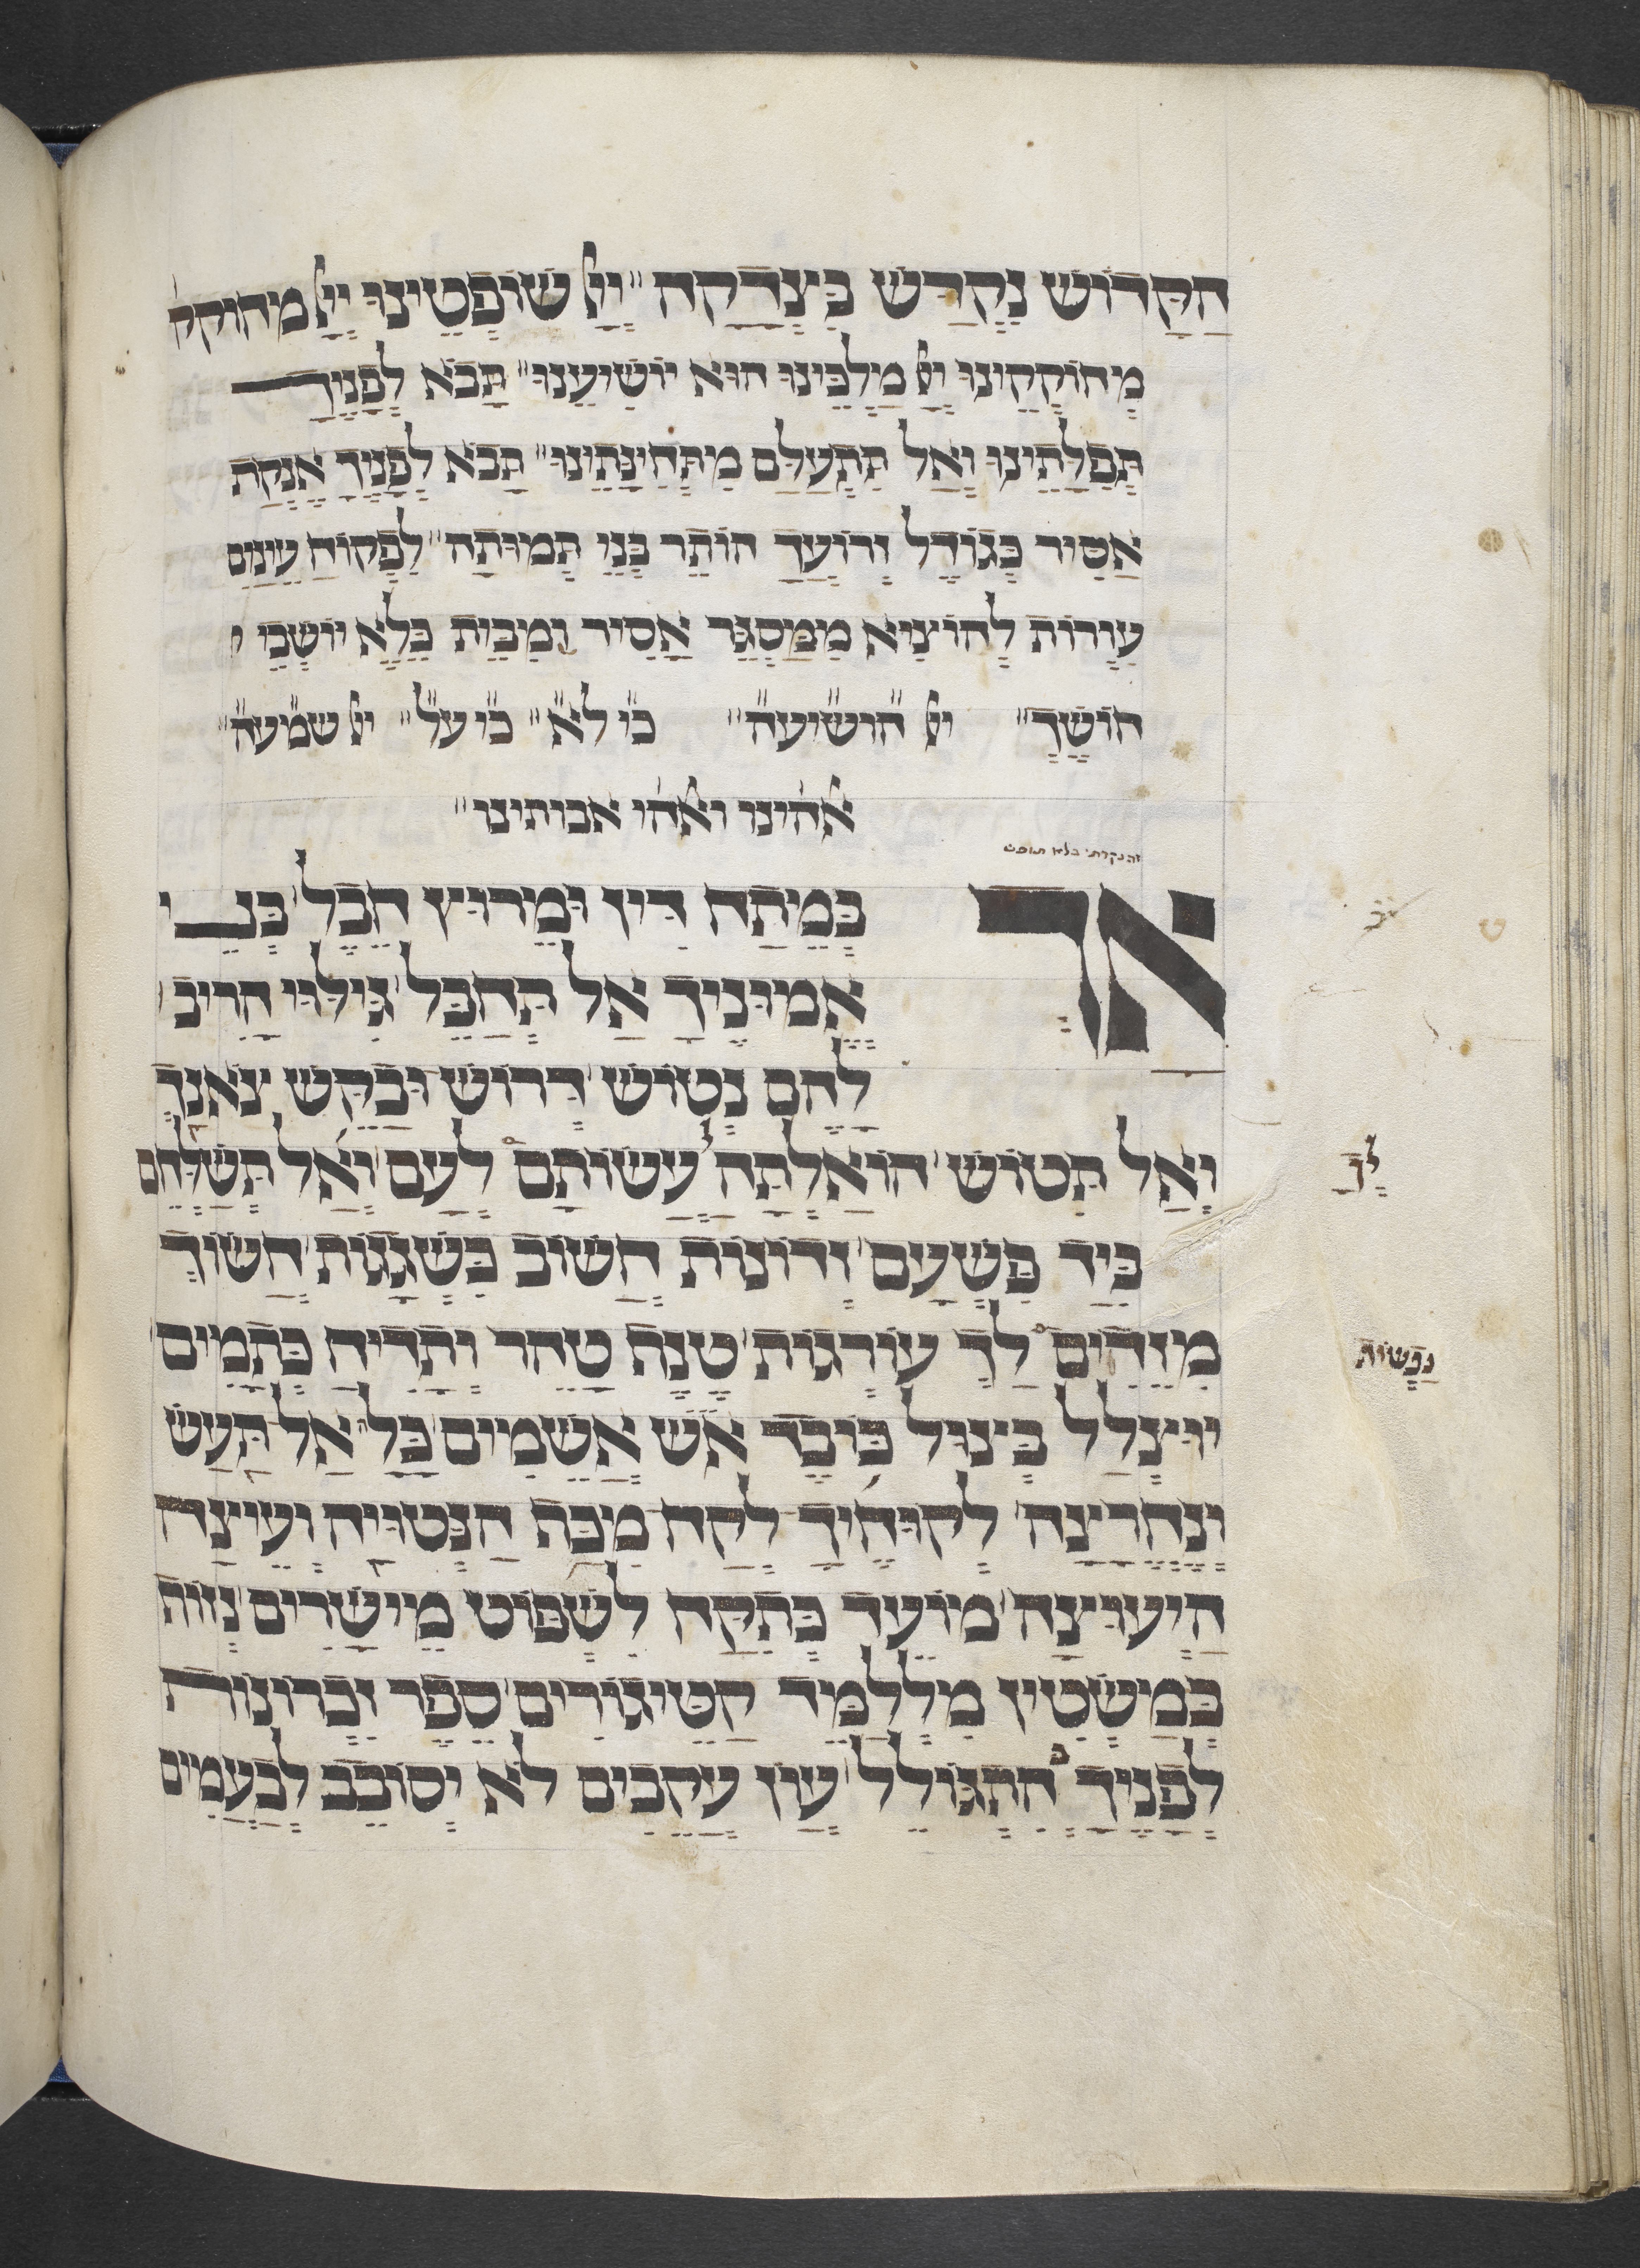 הַקָּדוֹשׁ נִקְדַּשׁ בִּצְדָקָה״ יְיָ שׁוֹפְטֵינוּ יְיָ מחוקק
מְחוֹקְקֵינוּ יְיָ מַלְכֵּינוּ הוּא יוֹשִׁיעֵנוּ״ תָּבֹא לְפָנֶיךָ
תְּפִלָּתֵינוּ וְאַל תִּתְעַלַּם מִתְּחִינָּתֵינוּ״ תָּבֹא לְפָנֶיךָ אֶנְקַת
אַסִיר כְּגוֹדֶל זְרוֹעֲךָ הוֹתֵר בְּנֵי תְמוּתָה״ לִפְקוֹחַ עֵינַיִם
עִוְרוֹת לְהוֹצִיא מִמַּסְגֵּר אַסִיר וּמִבֵּית כֶּלֶא יוֹשְׁבֵי
חוֹשֶׁךְ״ ייָ הושיעה״ כי לא״ כי על״ ייָ שמעה״
אלהינו ואלהי אבותינו״
זה נקרתי בלא תופש
אַךְ בְּמֵתַח דִּין וּמֵרוּץ חֵבֶל׳ בְּנֵי
אֱמוּנֶיךָ אַל תְּחַבֵּל׳ גִּילּוּי הָרִיב׳
לָהֶם נְטוֹשׁ׳ דְּרוֹשׁ וּבַקֵּשׁ צֹאנְךָ
וְאַל תִּטּוֹשׁ׳ הוֹאַלְתָּה עֲשׂוֹתָם לְעָם׳ וְאַל תְּשַׁלְּחֵם
לְךָ
בְּיַד פִּשְׁעָם׳ זְדוֹנוֹת חֲשׁוֹב כִּשְׁגָגוֹת׳ חֲשׂוֹךְ
מִזֵּדִים לְךָ עוֹרְגוֹת׳ טֶנֶת טַהֵר וְתָדִיחַ כְּתָמִים׳
נְפָשׁוֹת
יוּצְלַל כְּצוּל כּוֹבֶד אֵשׁ אֲשֵׁמִים׳ כָּלָה אַל תַּעַשׂ
וְנֶחֱרָצָה׳ לְקוּחֶיךָ לְקַח מִכַּת הַנְּטוּיָה וְעֵיצָה
הַיְעוּצָה׳ מוֹעֵד כְּתִקַּח לִשְׁפּוֹט מֵישָׁרִים׳ נְזוֹת
כְּמַשְׂטִין מִלְלַמֵּד קַטֵּיגוֹרִים׳ סֵפֶר זִכְרוֹנוֹת
לְפָנֶיךָ בְּהִתְגּוֹלֵל׳ עֲוֹן עֲקֵבִים לֹא יְסוֹבֵב לִבְעָמִים